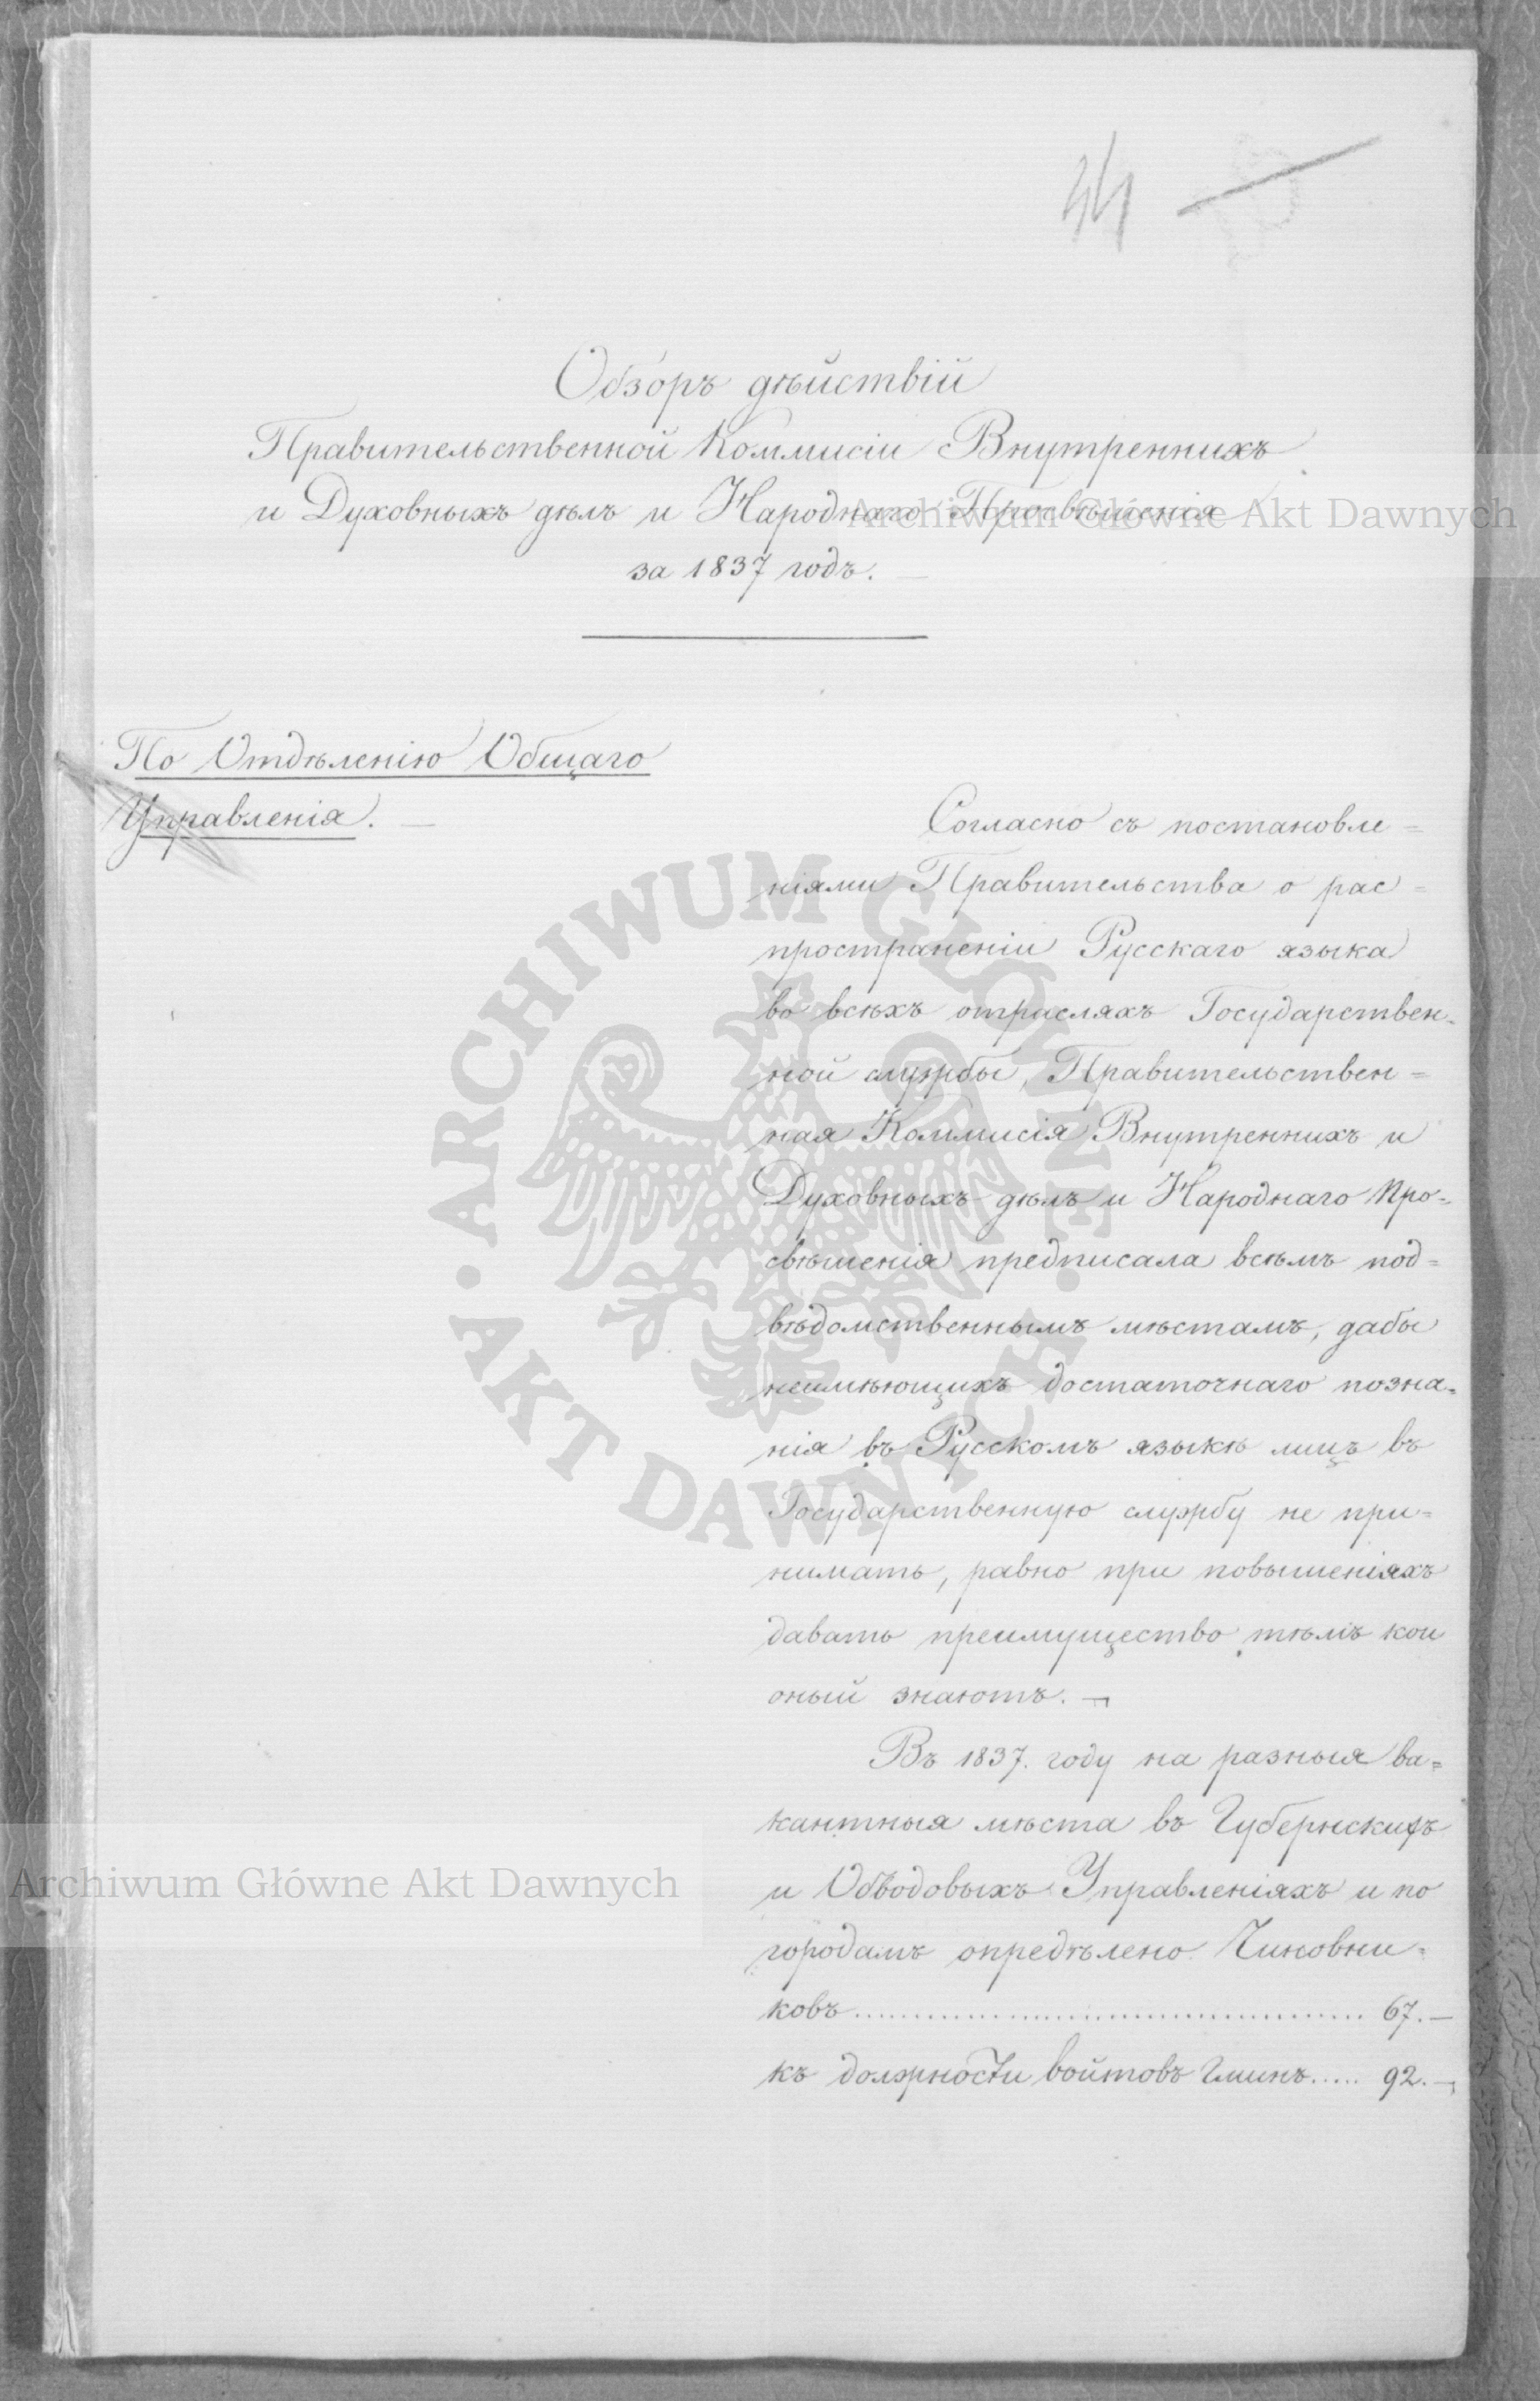 44
Обзоръ дѣйствій
Правительственной Коммисіи Внутреннихъ
и Духовныхъ дѣлъ и Народнаго Просвѣщенія
за 1837 годъ. —
По Отдѣленію Общаго
Управленія. —
Согласно съ постановле=
ніями Правительства о рас=
пространеніи Русскаго языка
во всѣхъ отрасляхъ Государствен=
ной службы, Правительствен=
ная Коммисія Внутреннихъ и
Духовныхъ дѣлъ и Народнаго Про=
свѣщенія предписала всѣмъ под=
вѣдомственнымъ мѣстамъ, дабы
неимѣющихъ достаточнаго позна=
нія въ Русскомъ языкѣ лицъ въ
Государственную службу не при=
нимать, равно при повышеніяхъ
давать преимущество тѣмъ кои
оный знаютъ. —
Въ 1837. году на разныя ва=
кантныя мѣста въ Губернскихъ
и Обводовыхъ Управленіяхъ и по
городамъ опредѣлено Чиновни=
ковъ ........................................ 67. —
къ должности войтовъ Гминъ ..... 92. —
Archiwum Główne Akt Dawnych
ARCHIWUM GŁÓWNE
AKT DAWNYCH
Archiwum Główne Akt Dawnych